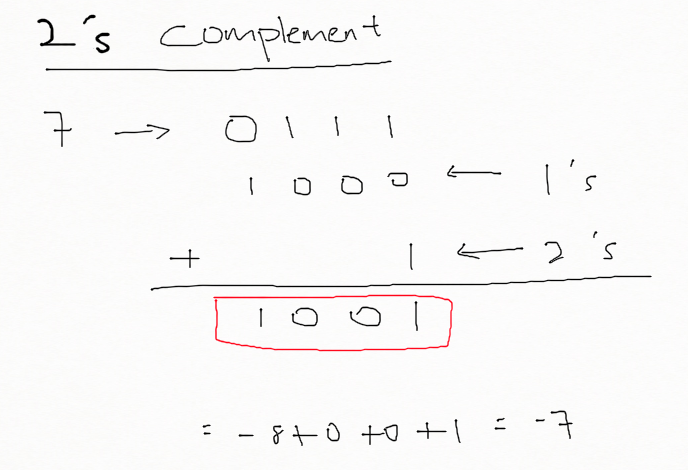 2's complement
7 → 0 1 1 1
1 0 0 0 ← 1's
+ 1 ← 2's
1 0 0 1
= -8+0+0+1 = -7